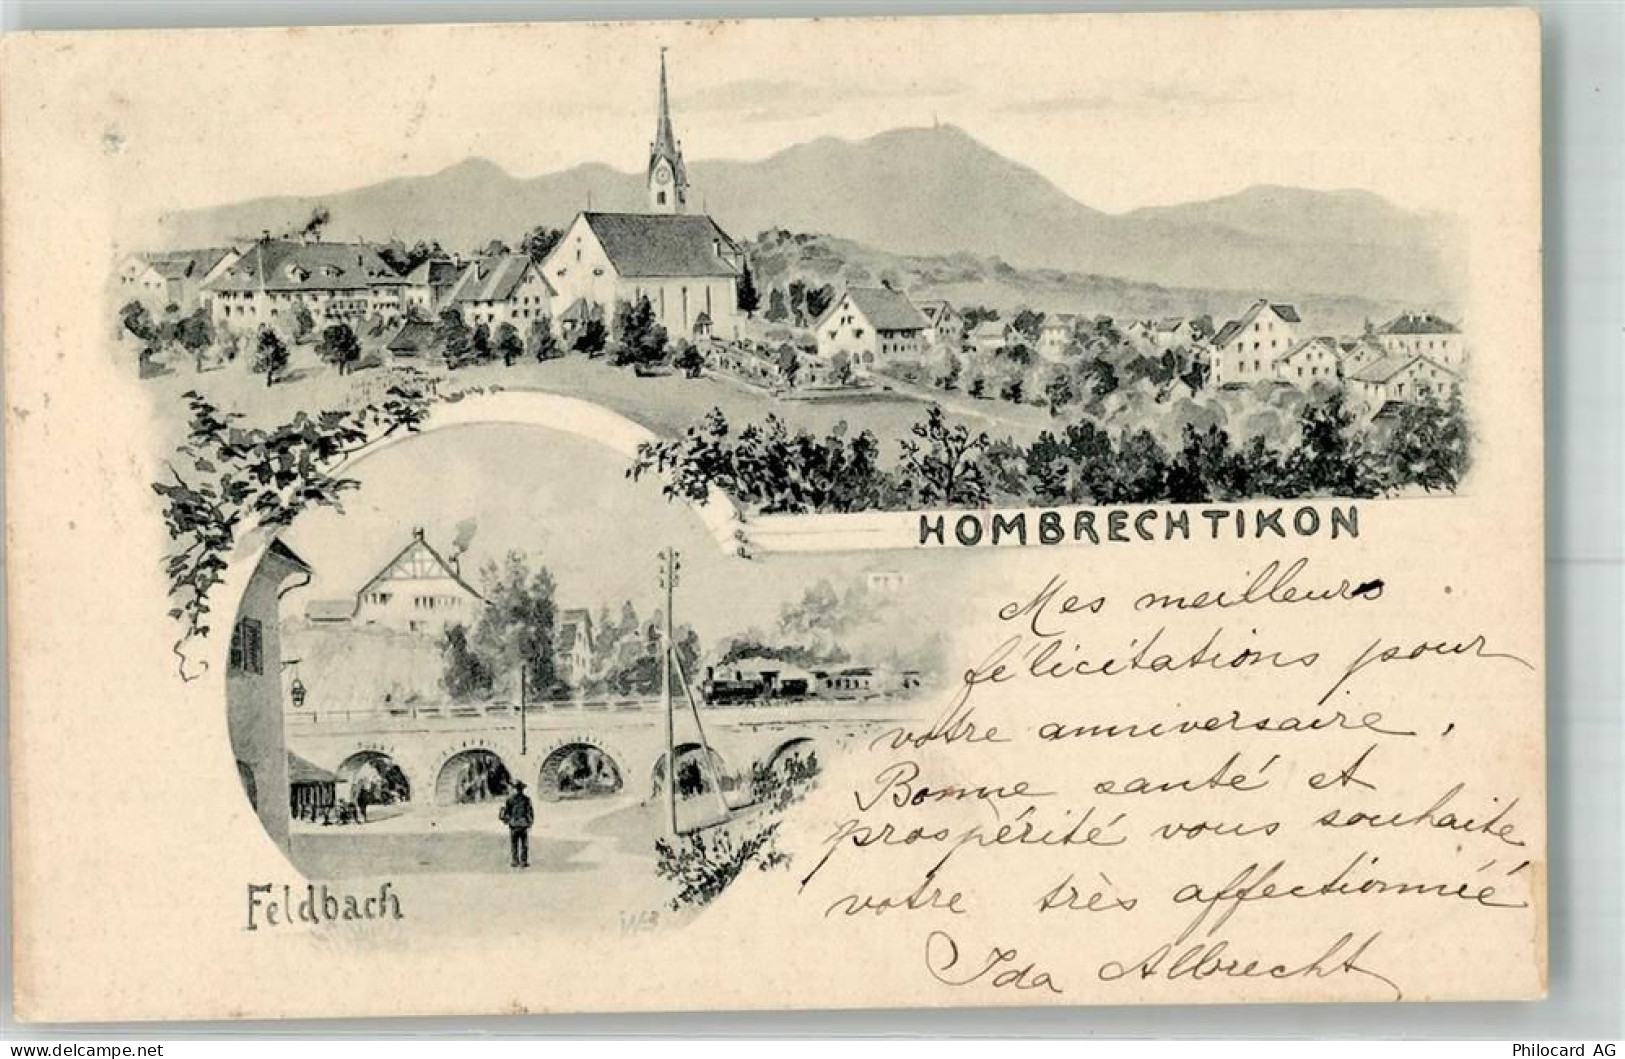 HOMBRECHTIKON
Mes meilleurs
félicitations pour
votre anniversaire.
Bonne santé et
prospérité vous souhaite
votre très affectionnée
Ida Albrecht
Feldbach
delcampe.net
Philocard AG